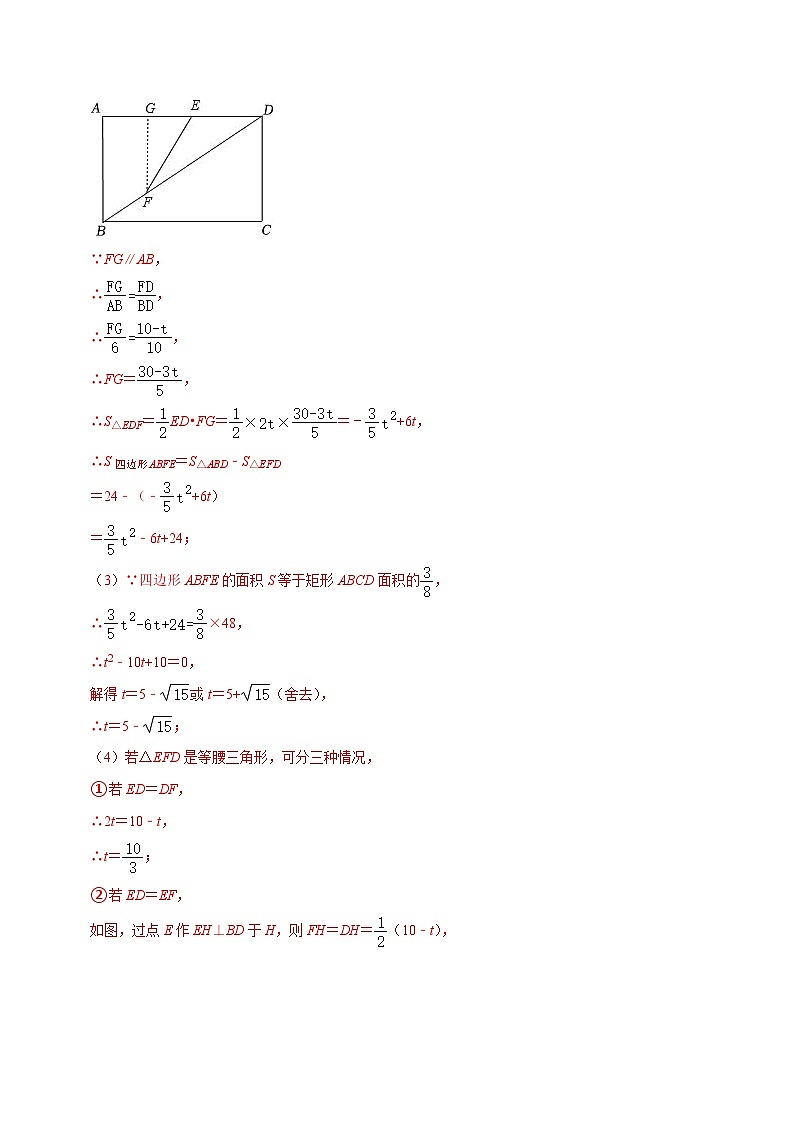 A G E D
F
B C
∵FG∥AB，
∴FG/AB=FD/BD，
∴FG/6=(10-t)/10，
∴FG=(30-3t)/5，
∴S△EDF=1/2ED•FG=1/2×2t×(30-3t)/5=-3/5t²+6t，
∴S四边形ABFE=S△ABD﹣S△EFD
=24﹣（﹣3/5t²+6t）
=3/5t²﹣6t+24；
（3）∵四边形ABFE的面积S等于矩形ABCD面积的3/8，
∴3/5t²-6t+24=3/8×48，
∴t²﹣10t+10=0，
解得t=5﹣√15或t=5+√15（舍去），
∴t=5﹣√15；
（4）若△EFD是等腰三角形，可分三种情况，
①若ED=DF，
∴2t=10﹣t，
∴t=10/3；
②若ED=EF，
如图，过点E作EH⊥BD于H，则FH=DH=1/2（10﹣t），